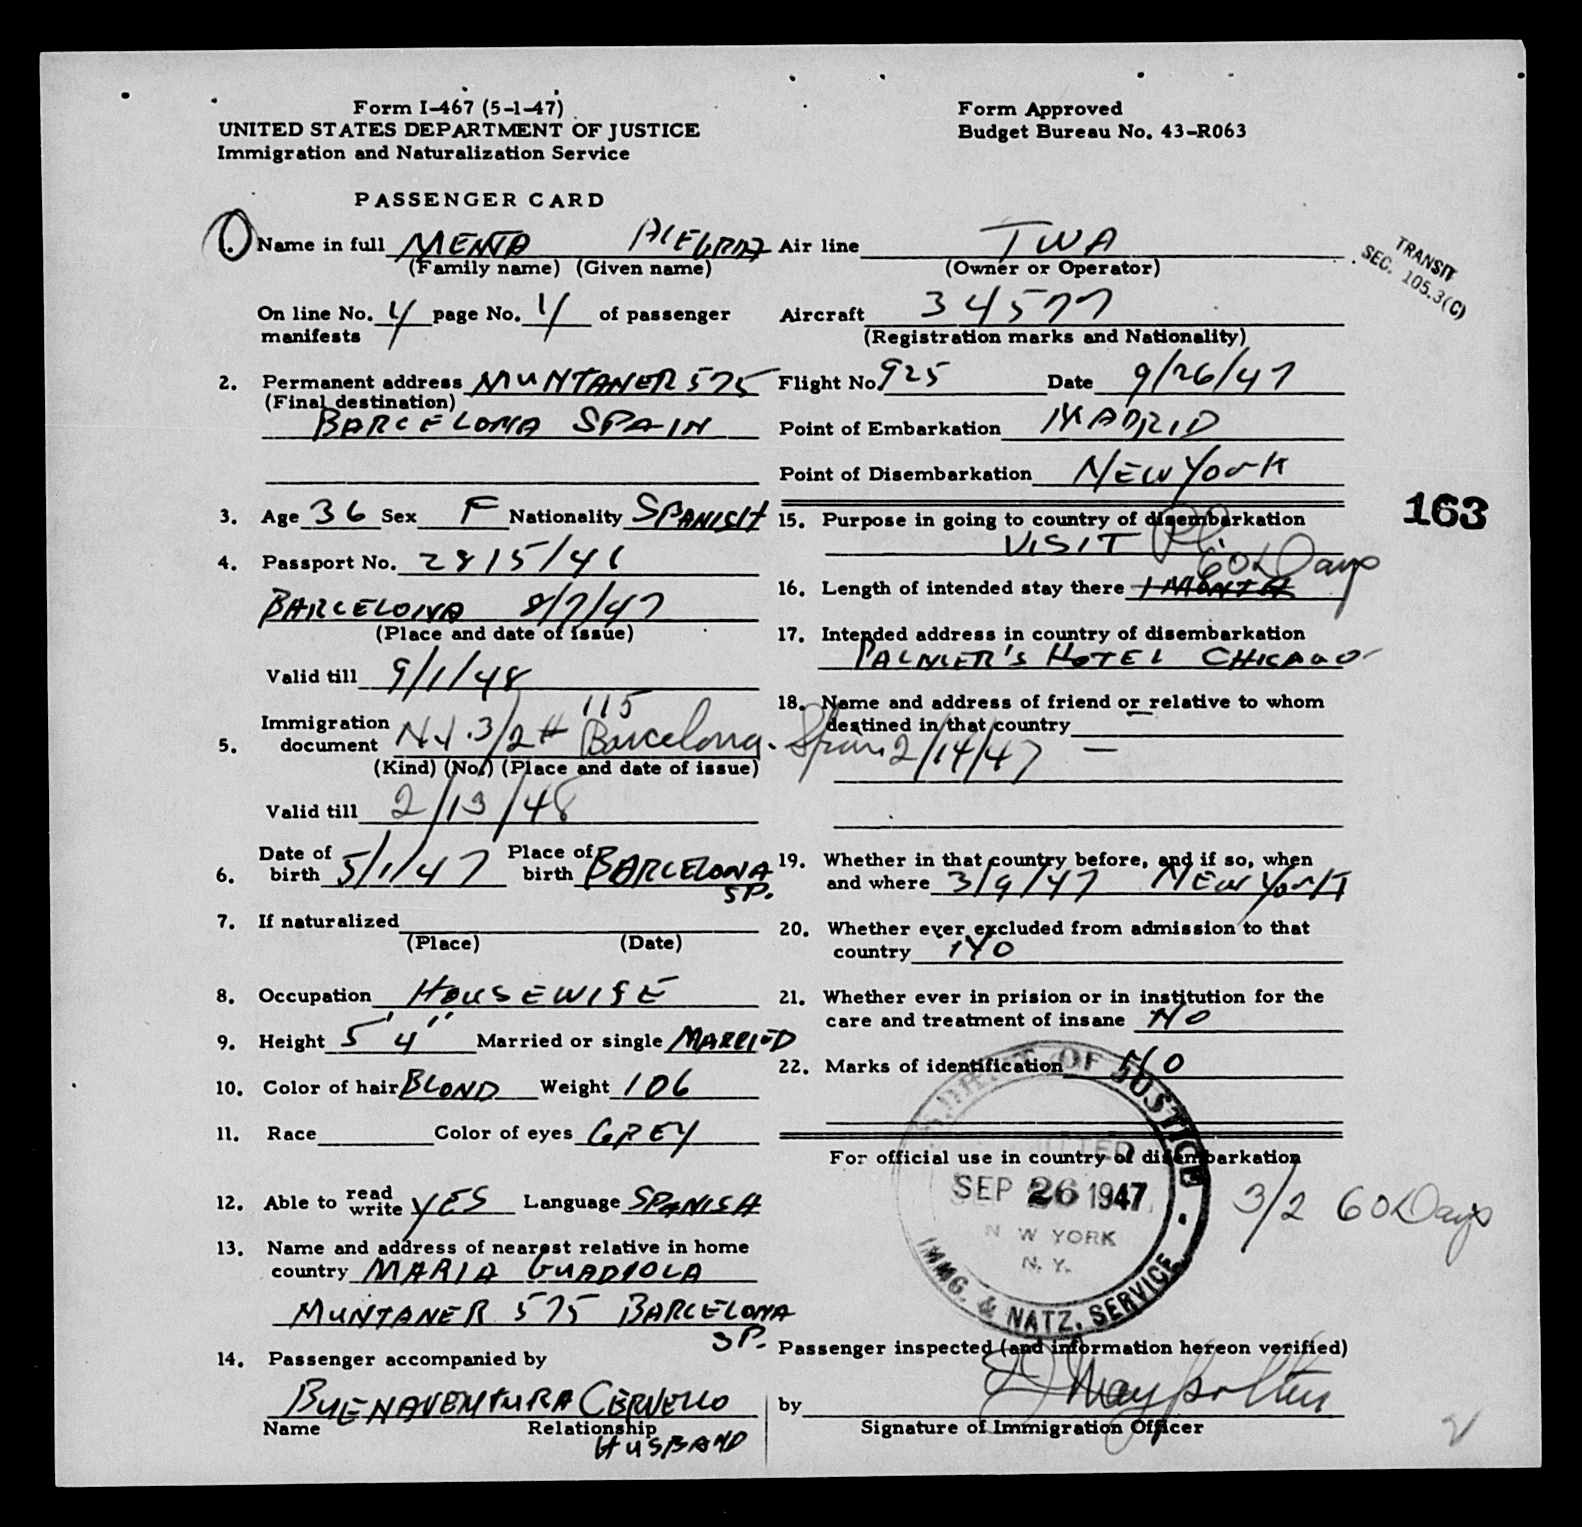 Form I-467 (5-1-47)
UNITED STATES DEPARTMENT OF JUSTICE
Immigration and Naturalization Service
Form Approved
Budget Bureau No. 43-R063
PASSENGER CARD
1. Name in full MENTA ALEGRIA
(Family name) (Given name)
On line No. 4 page No. 4 of passenger
manifests
2. Permanent address MUNTANER 575
(Final destination)
BARCELONA SPAIN
3. Age 36 Sex F Nationality SPANISH
4. Passport No. 2815/46
BARCELONA 8/7/47
(Place and date of issue)
Valid till 9/1/48
115
5. Immigration document 3/2 # Barcelona. Spain 2/14/47
(Kind) (No.) (Place and date of issue)
Valid till 2/13/48
6. Date of birth 5/1/47 Place of birth BARCELONA
SP.
7. If naturalized
(Place) (Date)
8. Occupation HOUSEWIFE
9. Height 5'4" Married or single MARRIED
10. Color of hair BLOND Weight 106
11. Race Color of eyes GREY
12. Able to read write YES Language SPANISH
13. Name and address of nearest relative in home
country MARIA GUADIOLA
MUNTANER 575 BARCELONA
SP.
14. Passenger accompanied by
BUENAVENTURA CERVELLO
Name Relationship
HUSBAND
Air line TWA
(Owner or Operator)
TRANSIT
SEC. 105.3(C)
Aircraft 34577
(Registration marks and Nationality)
Flight No. 925 Date 9/26/47
Point of Embarkation MADRID
Point of Disembarkation NEW YORK
163
15. Purpose in going to country of disembarkation
VISIT
60 Days
16. Length of intended stay there 1 MONTH
17. Intended address in country of disembarkation
PALMER'S HOTEL CHICAGO
18. Name and address of friend or relative to whom
destined in that country —
19. Whether in that country before, and if so, when
and where 3/9/47 NEW YORK
20. Whether ever excluded from admission to that
country NO
21. Whether ever in prision or in institution for the
care and treatment of insane NO
22. Marks of identification NO
For official use in country of disembarkation
OF JUSTICE
SEP 26 1947
N W YORK
N. Y.
IMMG. & NATZ. SERVICE
3/2 60 Days
Passenger inspected (and information hereon verified)
by
Signature of Immigration Officer